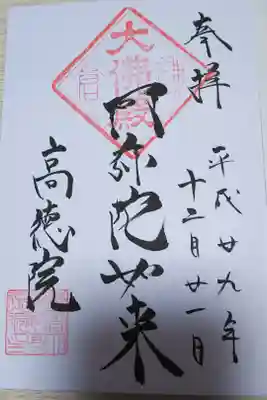 奉拝
平成廿九年
十二月廿一日
大佛殿
阿弥陀如来
高徳院